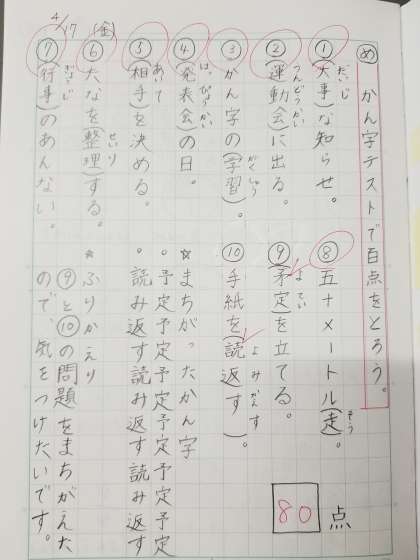 4/17(金)
め かん字テストで百点をとろう。
① (大事)な知らせ。
だいじ
② (運動会)に出る。
うんどうかい
③ かん字の(学習)。
がくしゅう
④ (発表会)の日。
はっぴょうかい
⑤ (相手)を決める。
あいて
⑥ たなを(整理)する。
せいり
⑦ (行事)のあんない。
ぎょうじ
⑧ 五十メートル(走)。
そう
⑨ (矛定)を立てる。
よてい
⑩ 手紙を(読返す)。
よみかえす
80点
☆まちがったかん字
・予定予定予定予定
・読み返す読み返す読み返す
☆ふりかえり
⑨と⑩の問題をまちがえた
ので、気をつけたいです。